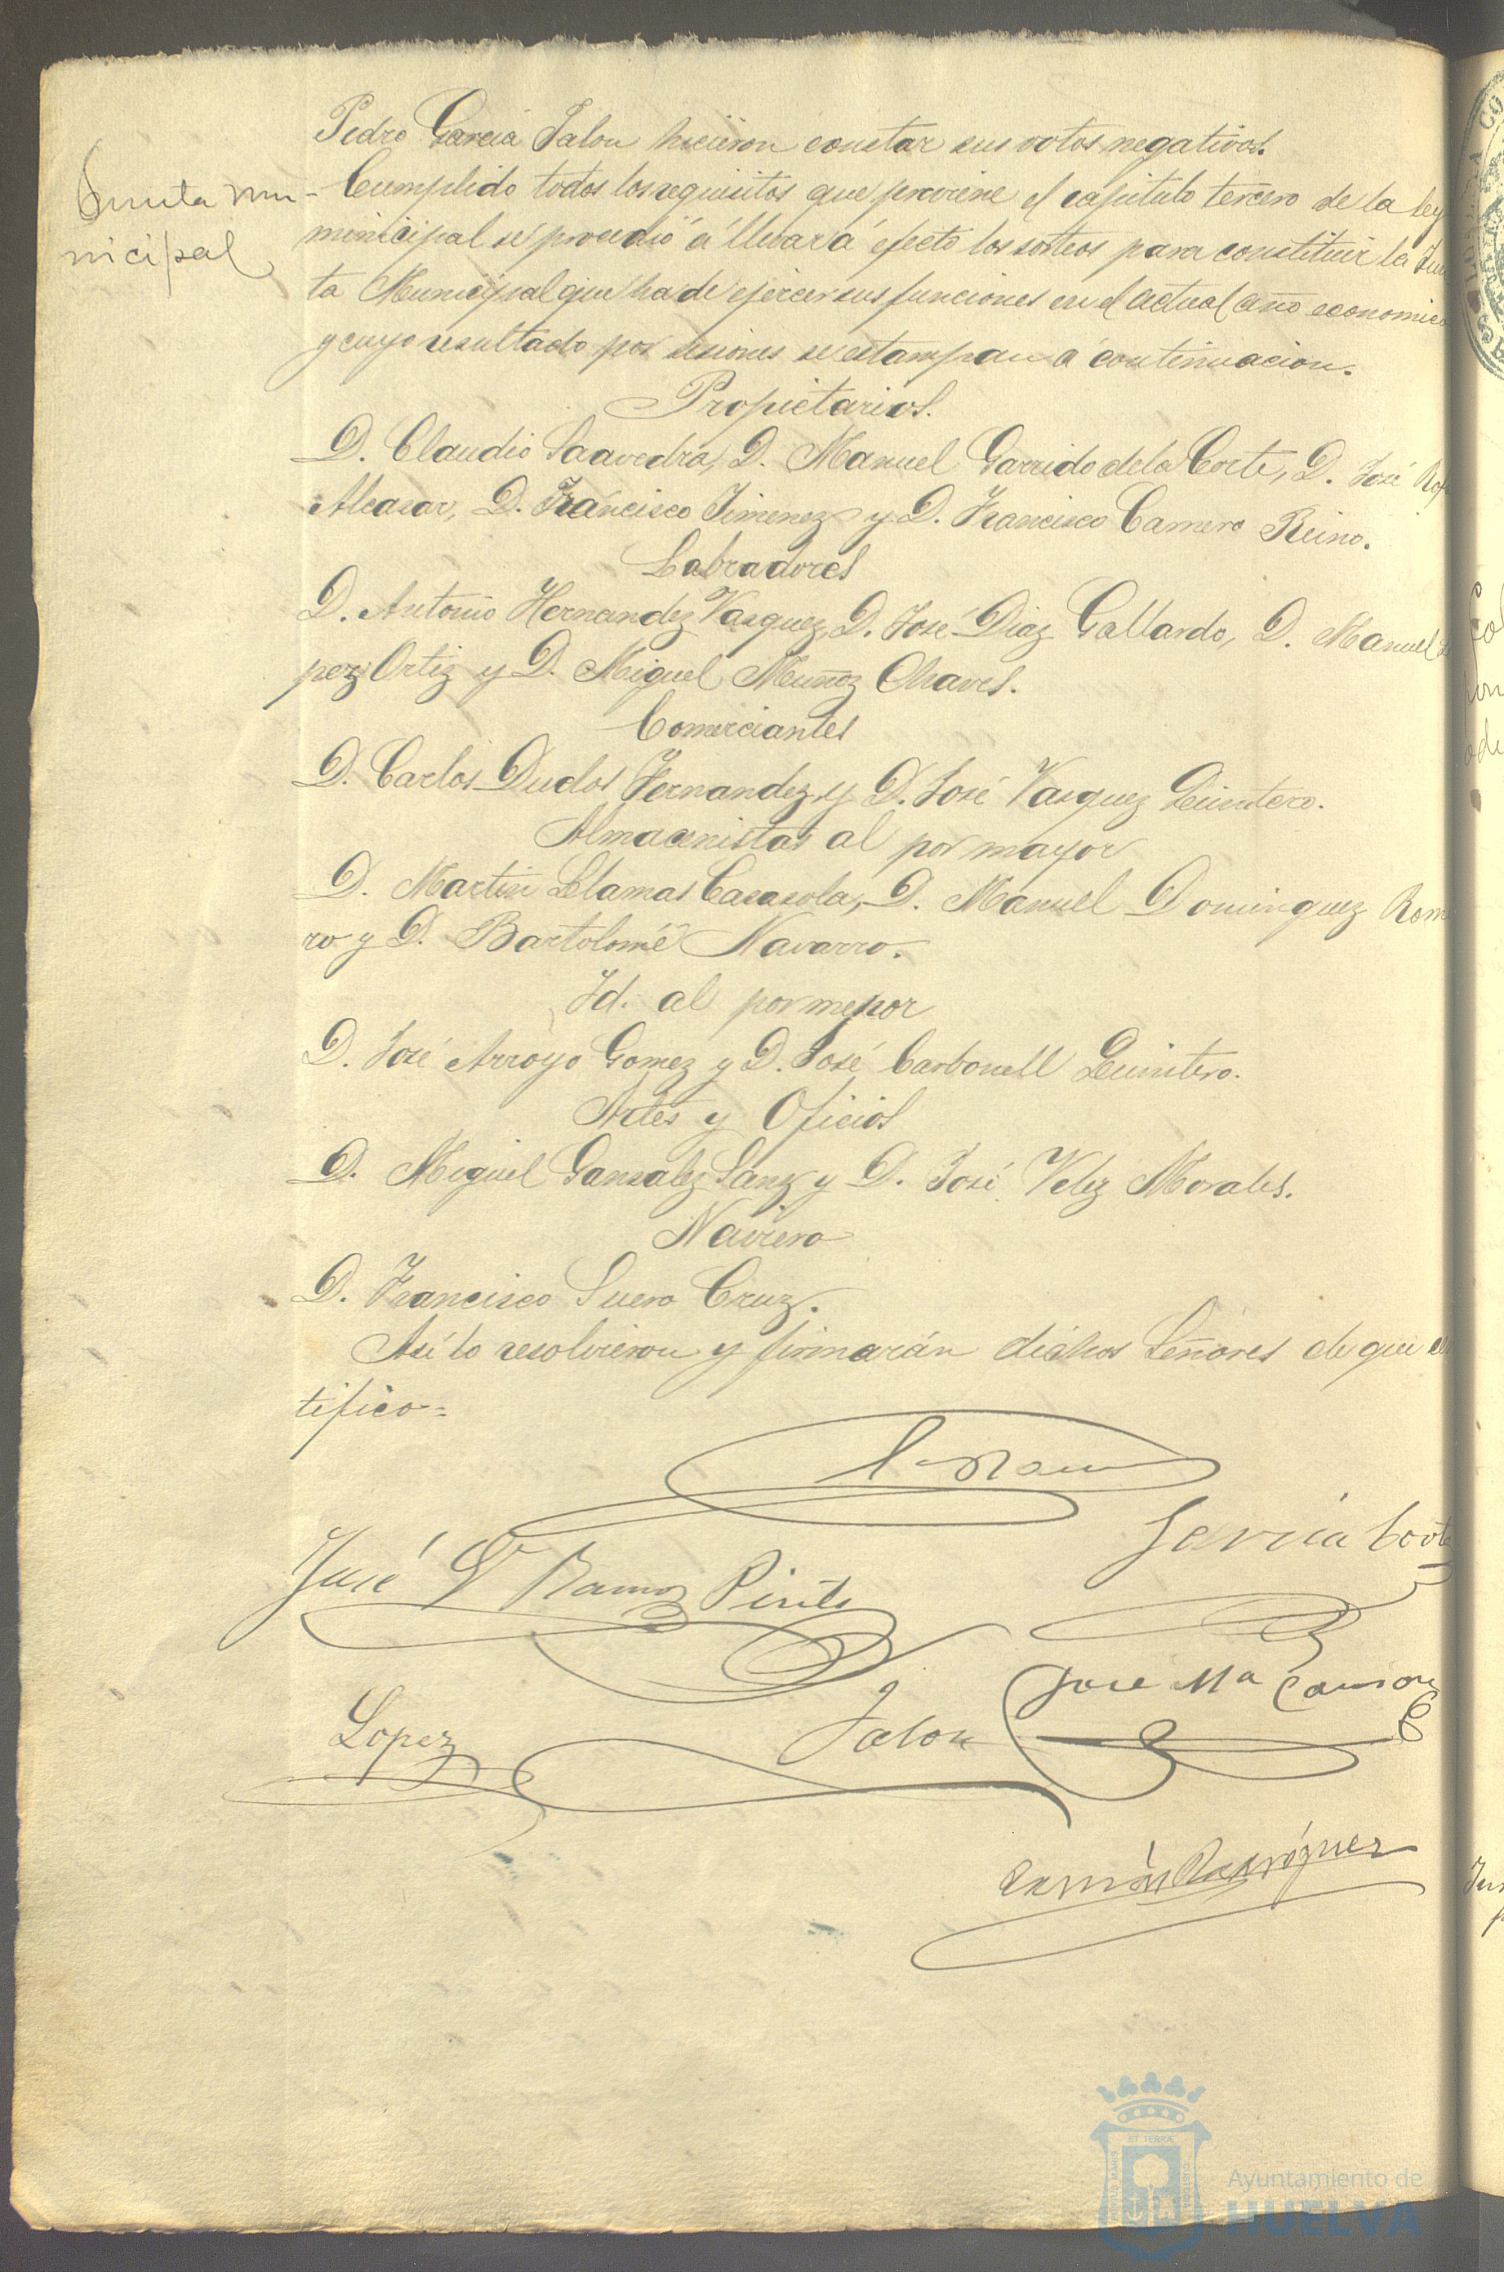 Pedro García Jalon hicieron constar sus votos negativos.
Junta mu-
nicipal
Cumplido todos los requisitos que previene el capitulo tercero de la ley
municipal se procedió á llevar á efecto los sorteos para constituir la Jun
ta Municipal que ha de ejercer sus funciones en el actual año economico
y cuyo resultado por sesiones se estampan á continuacion.
Propietarios.
D. Claudio Saavedra, D. Manuel Garrido de la Corte, D. José
Alcazar, D. Francisco Jimenez y D. Francisco Camero Reino.
Labradores
D. Antonio Hernandez Vazquez, D. José Diaz Gallardo, D. Manuel
pez Ortiz y D. Miguel Muñoz Chaves.
Comerciantes
D. Carlos Duclos Fernandez y D. José Vazquez Quintero.
Almacenistas al por mayor
D. Martin Llamas Casasola, D. Manuel Dominguez Rome
ro y D. Bartolomé Navarro.
Id. al por menor
D. José Arroyo Gomez y D. José Carbonell Quintero.
Artes y Oficios
D. Miguel Gonzalez Sanz y D. José Velez Morales.
Naviero
D. Francisco Suero Cruz.
Asi lo resolvieron y firmarán dichos Señores de que cer
tifico=
García Cortes
José Ramos Pinto
José Mª
Lopez
Jalon
Ramón Rodríguez
Ayuntamiento de
HUELVA